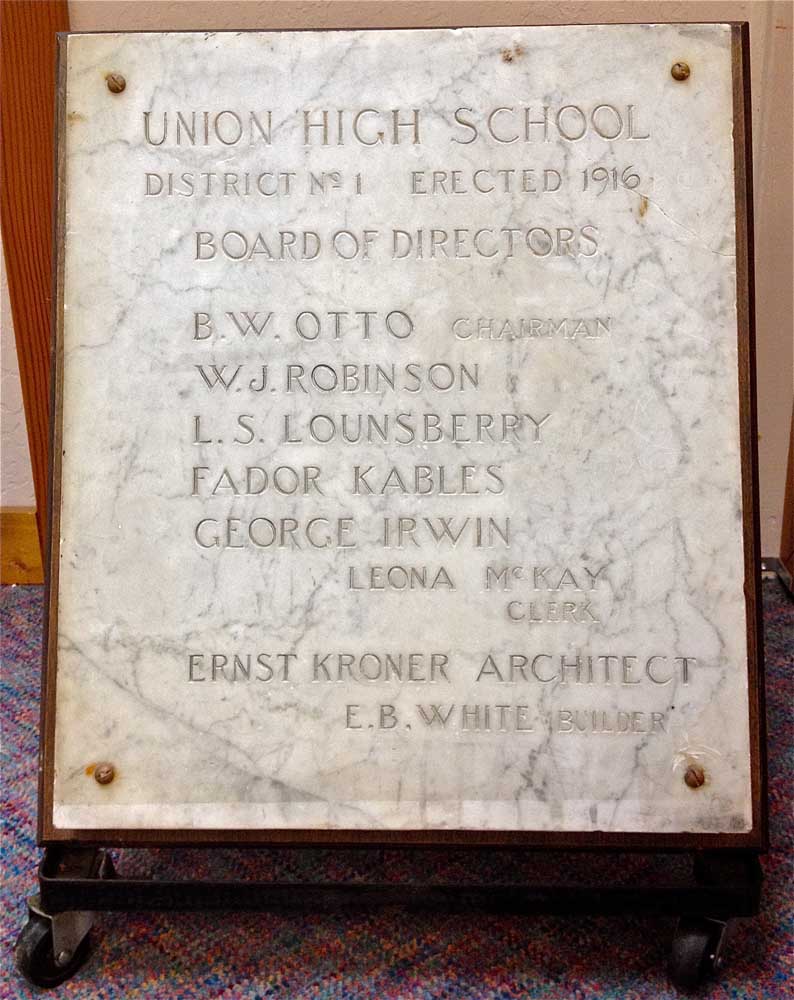 UNION HIGH SCHOOL
DISTRICT Nº 1 ERECTED 1916
BOARD OF DIRECTORS
B.W. OTTO CHAIRMAN
W.J. ROBINSON
L.S. LOUNSBERRY
FADOR KABLES
GEORGE IRWIN
LEONA McKAY
CLERK
ERNST KRONER ARCHITECT
E.B. WHITE BUILDER